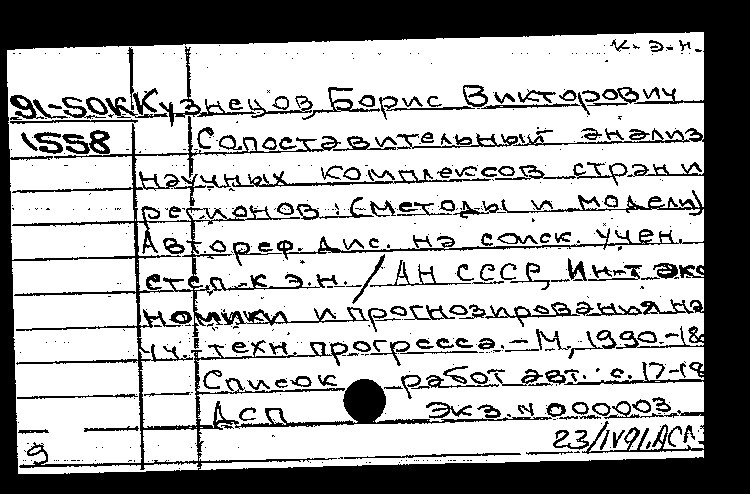 к.э.н.
91-50К Кузнецов, Борис Викторович
1558 Сопоставительный анализ
научных комплексов стран и
регионов: (Методы и модели)
Автореф. дис. на соиск. учен.
степ. к.э.н. / АН СССР, Ин-т эко
номики и прогнозирования на
уч.-техн. прогресса. - М., 1990.-18
Список работ авт.: с. 17-18
ДСП Экз. N 000003.
23/IV91.
9